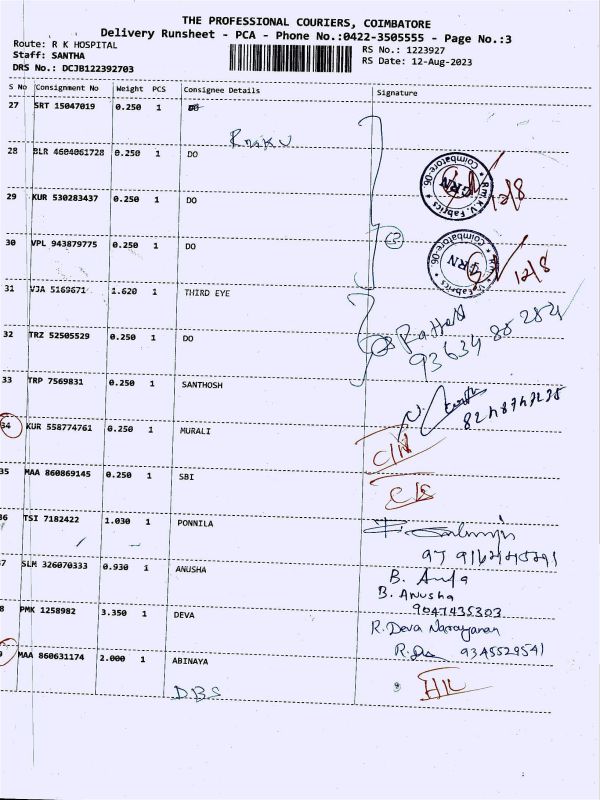 THE PROFESSIONAL COURIERS, COIMBATORE
Delivery Runsheet - PCA - Phone No.:0422-3505555 - Page No.:3
Route: R K HOSPITAL RS No.: 1223927
Staff: SANTHA RS Date: 12-Aug-2023
DRS No.: DCJB122392703
S No Consignment No Weight PCS Consignee Details Signature
27 SRT 15047019 0.250 1
RMKV
28 BLR 4604061728 0.250 1 DO
R.m.K.V. Fabrics GRN Coimbatore-06 12/8
29 KUR 530283437 0.250 1 DO
30 VPL 943879775 0.250 1 DO
Coimbatore-06 GRN Fabrics 12/8
31 VJA 5169671 1.620 1 THIRD EYE
32 TRZ 52505529 0.250 1 DO
33 TRP 7569831 0.250 1 SANTHOSH
34 KUR 558774761 0.250 1 MURALI
35 MAA 860869145 0.250 1 SBI
36 TSI 7182422 1.030 1 PONNILA
7 SLM 326070333 0.930 1 ANUSHA
B. Anusha
9047435303
8 PMK 1258982 3.350 1 DEVA
R. Deva Narayanan
9345529541
9 MAA 860631174 2.000 1 ABINAYA
D.B.S